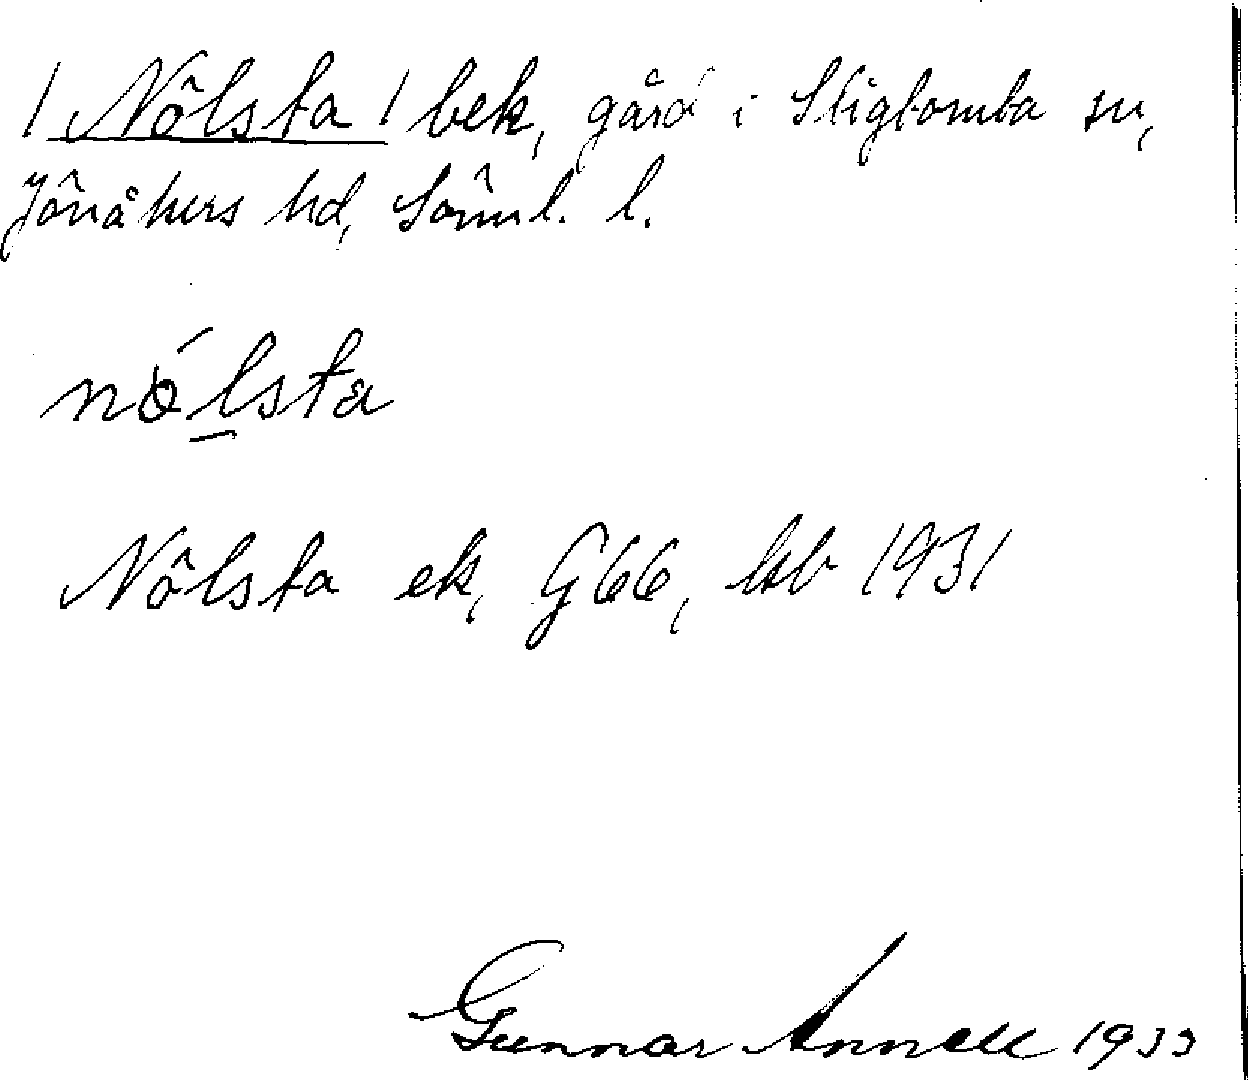 / Nölsta / bek, gård i Stigtomta sn,
Jönåkers hd, Sörml. l.
nölsta
Nölsta ek, G66, ktb 1931
Gunnar Annell 1933